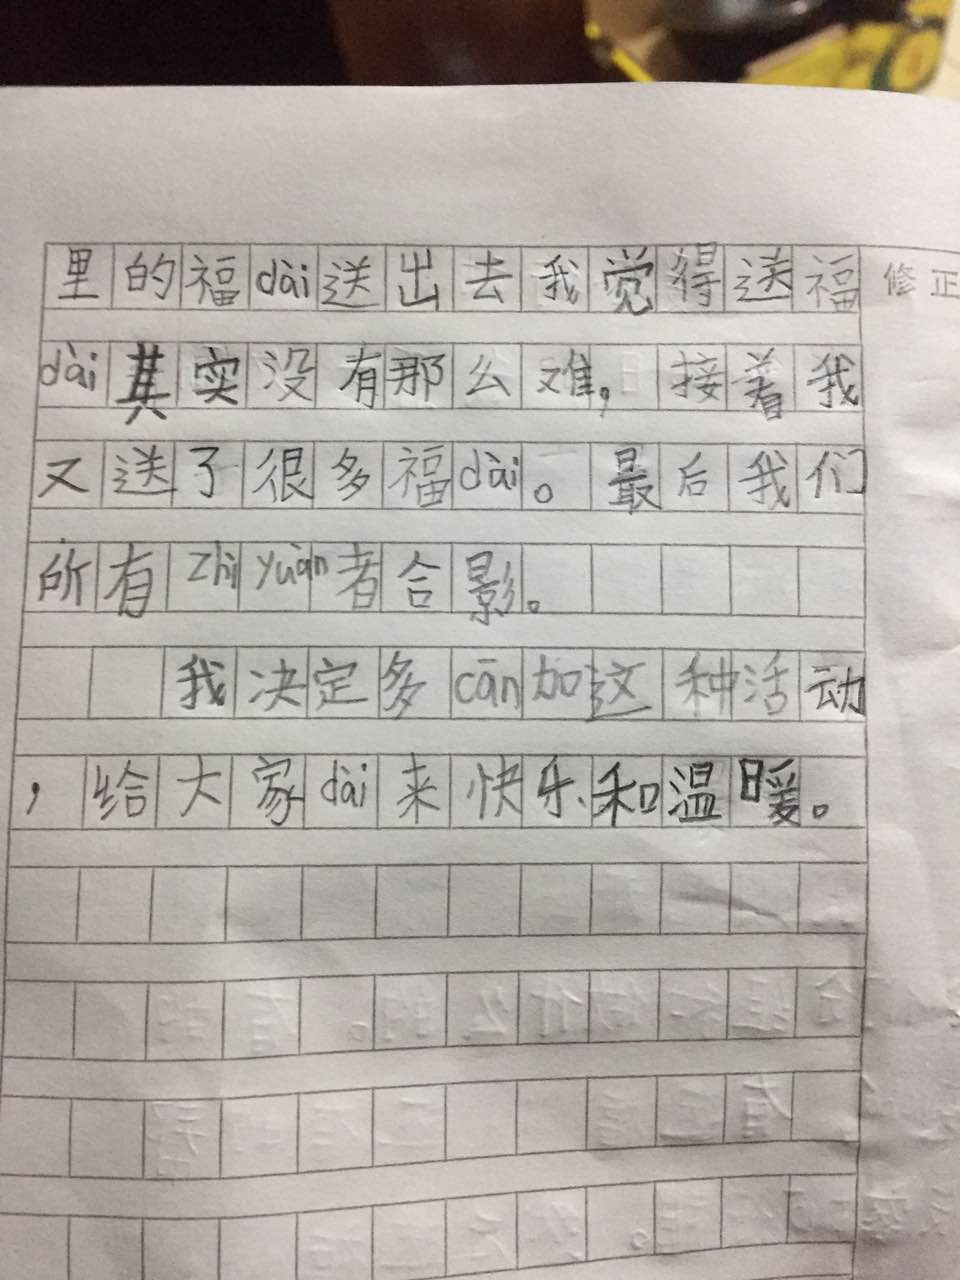 里的福dài送出去我觉得送福
修正
dài其实没有那么难,接着我
又送了很多福dài。最后我们
所有zhìyuàn者合影。
我决定多cān加这种活动
,给大家dài来快乐和温暖。